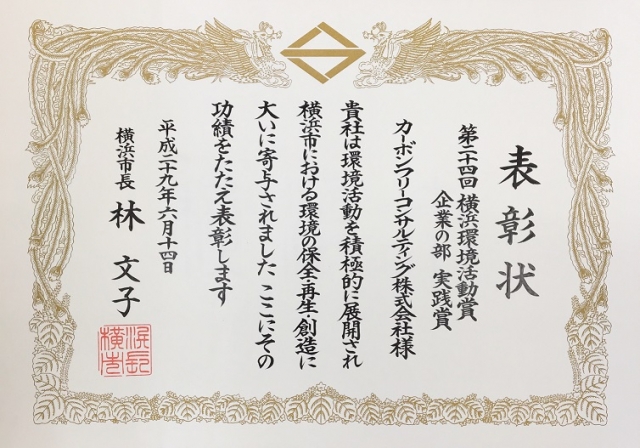 表彰状
第二十四回 横浜環境活動賞
企業の部 実践賞
カーボンフリーコンサルティング株式会社様
貴社は環境活動を積極的に展開され
横浜市における環境の保全・再生・創造に
大いに寄与されました ここにその
功績をたたえ表彰します
平成二十九年六月十四日
横浜市長 林 文子